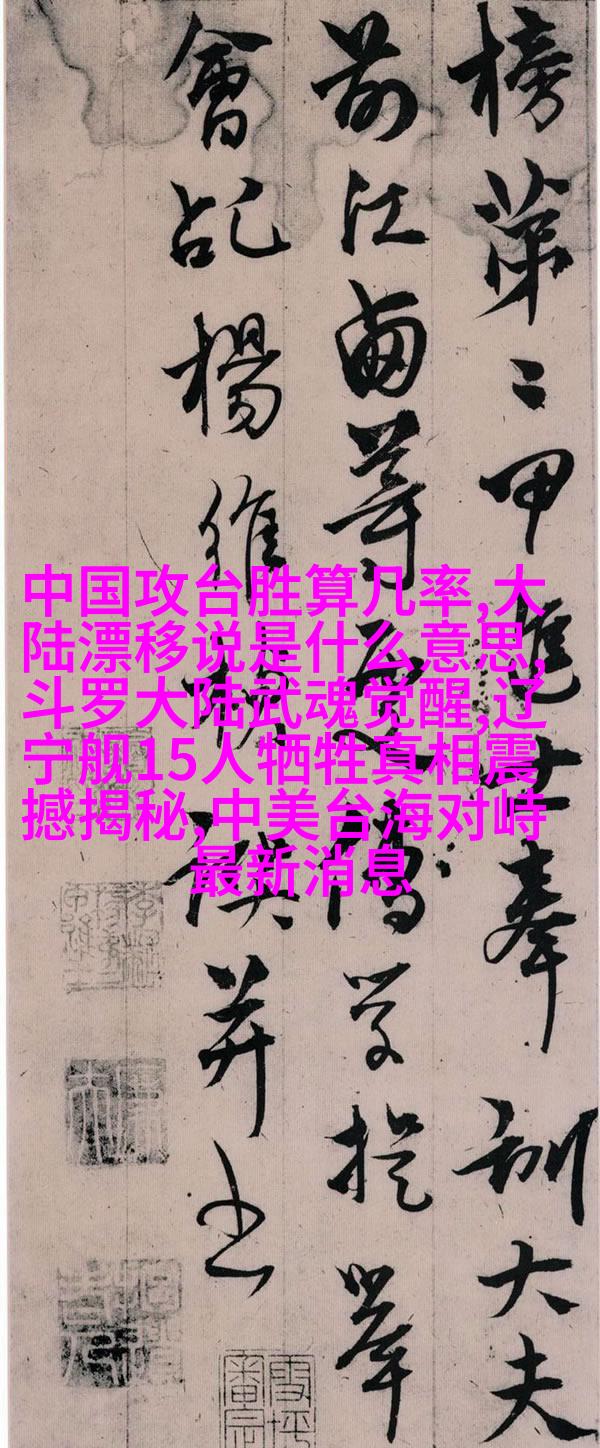 榜第二甲進士奉訓大夫
前江西等處儒學提舉
會稽楊維楨譔并書
中国攻台胜算几率,大
陆漂移说是什么意思,
斗罗大陆武魂觉醒,辽
宁舰15人牺牲真相震
撼揭秘,中美台海对峙
最新消息